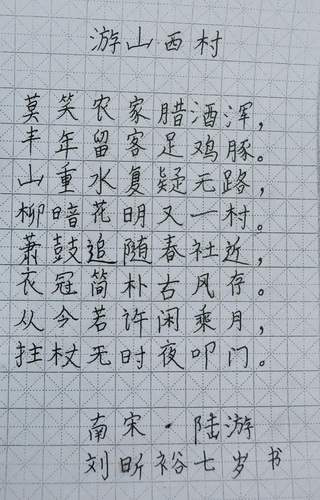 游山西村
莫笑农家腊酒浑，
丰年留客足鸡豚。
山重水复疑无路，
柳暗花明又一村。
萧鼓追随春社近，
衣冠简朴古风存。
从今若许闲乘月，
拄杖无时夜叩门。
南宋·陆游
刘昕裕七岁书